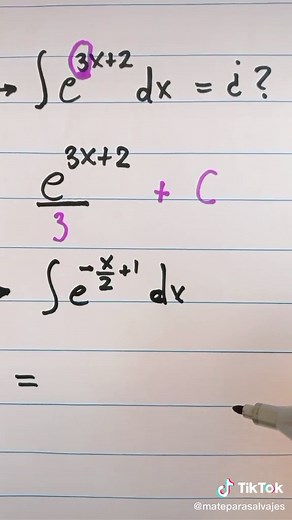 → ∫e^{3x+2} dx = ¿?
e^{3x+2}/3 + C
→ ∫e^{-x/2+1} dx
=
TikTok
@mateparasalvajes